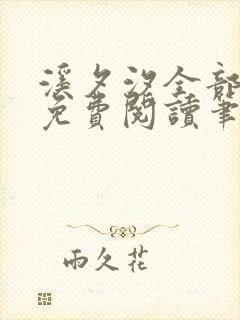 溪夕汐全部
免費閱讀筆
雨久花